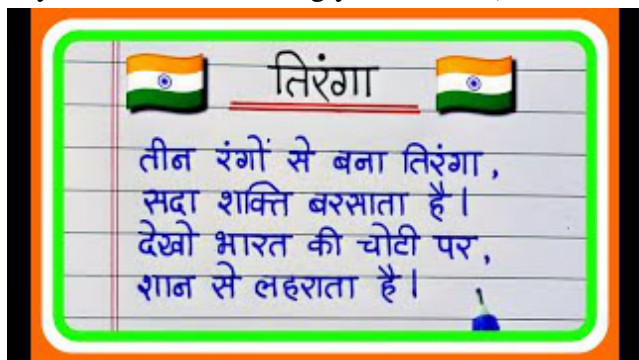 तिरंगा
तीन रंगों से बना तिरंगा,
सदा शक्ति बरसाता है।
देखो भारत की चोटी पर,
शान से लहराता है।